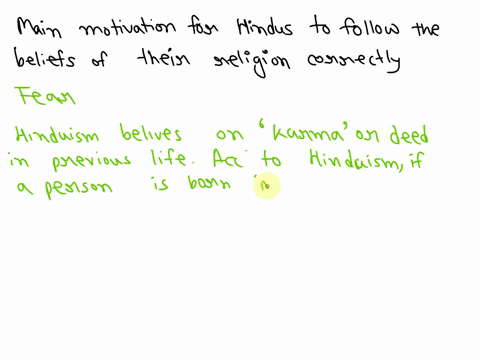 Main motivation for Hindus to follow the
beliefs of their religion correctly
Fear
Hinduism belives on 'Karma' or deed
in previous life. Acc to Hinduism, if
a person is born in